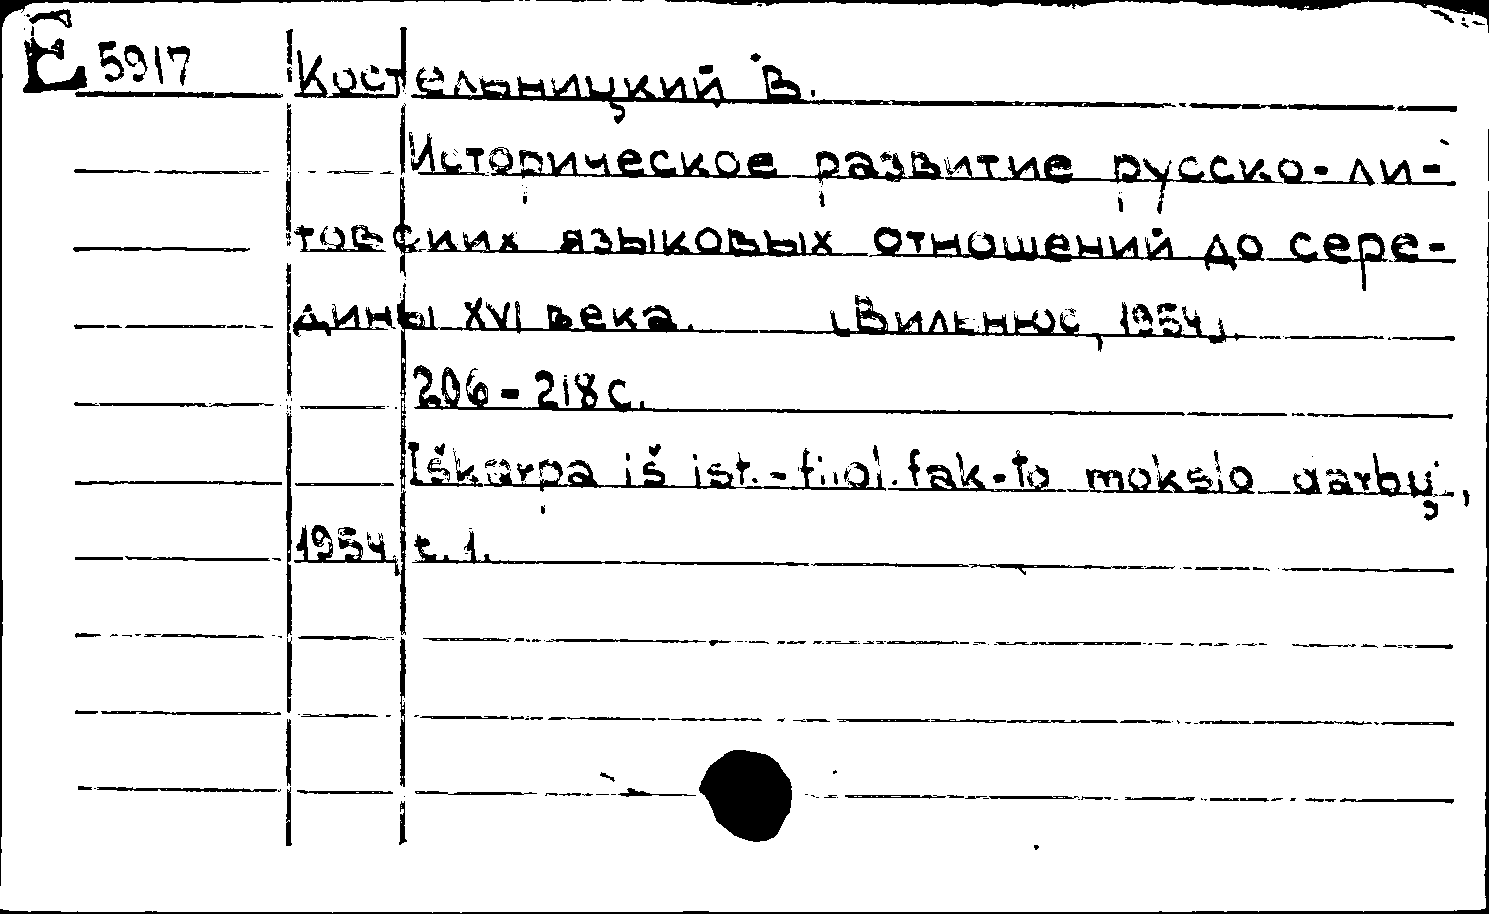 E 5917 Костельницкий В.
Историческое развитие русско-ли-
товских языковых отношений до сере-
дины XVI века. [Вильнюс, 1954].
206-218 с.
Iškarpa iš ist.-filol. fak-to mokslo darbų,
1954, t. 1.